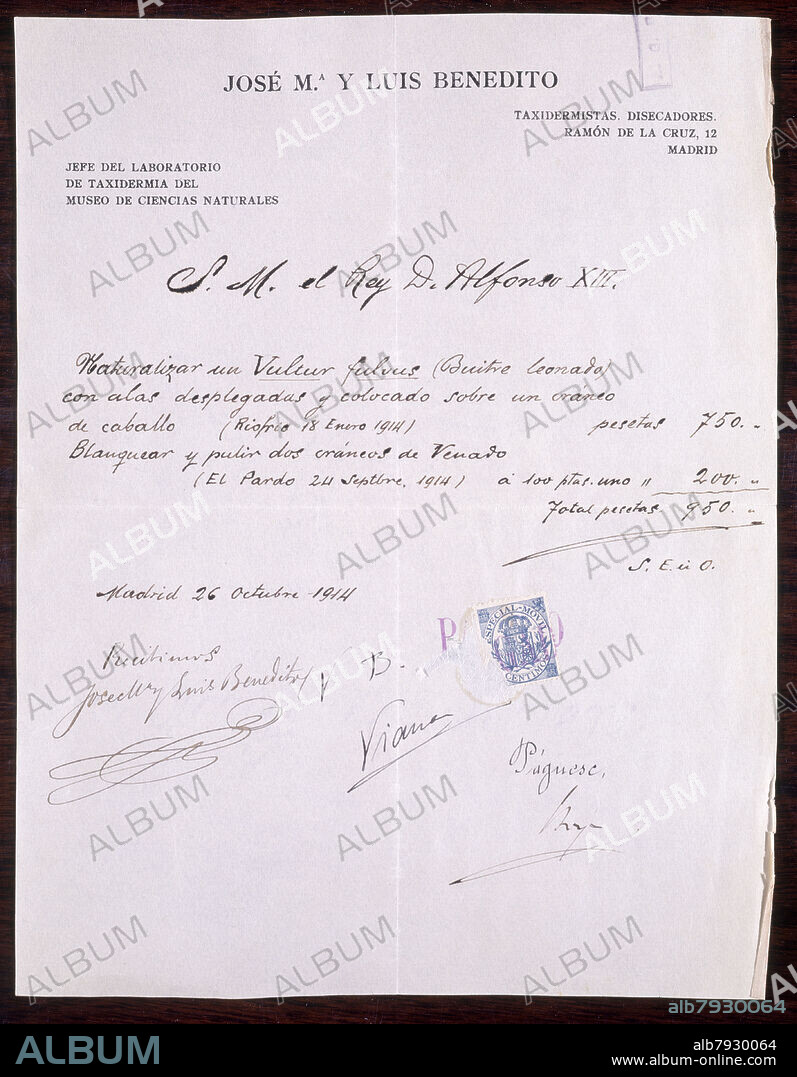 JOSÉ M.ª Y LUIS BENEDITO
TAXIDERMISTAS. DISECADORES.
RAMÓN DE LA CRUZ, 12
MADRID
JEFE DEL LABORATORIO
DE TAXIDERMIA DEL
MUSEO DE CIENCIAS NATURALES
S. M. el Rey D. Alfonso XIII.
Naturalizar un Vultur fulvus (Buitre leonado)
con alas desplegadas y colocado sobre un cráneo
de caballo (Riofrio 18 Enero 1914) pesetas 750. "
Blanquear y pulir dos cráneos de Venado
(El Pardo 24 Septbre, 1914) á 100 ptas. uno " 200. "
Total pesetas 950. "
S. E. ú O.
Madrid 26 Octubre 1914
ESPECIAL MÓVIL
CENTIMOS
Recibimos
José Mª y Luis Benedito
Viana
Páguese,
ALBUM
alb7930064
alb7930064
www.album-online.com